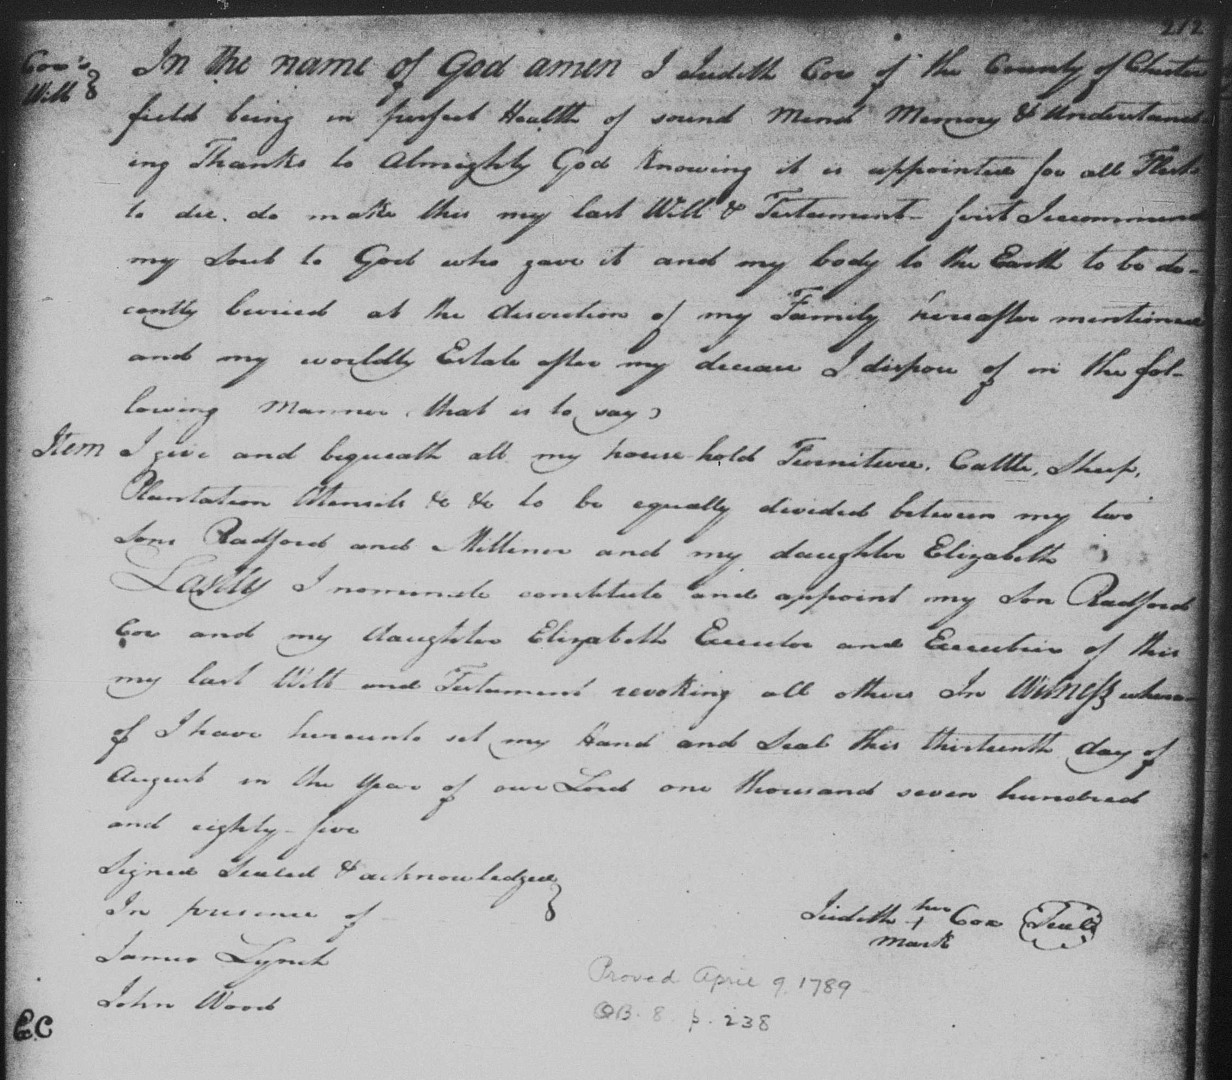 212
Cox's
Will
In the name of God amen I Judith Cox of the County of Chester
field being in perfect Health of sound Mind Memory & Understand
ing Thanks to Almighty God knowing it is appointed for all Flesh
to die. do make this my last Will & Testament - first I recommend
my Soul to God who gave it and my body to the Earth to be de-
cently buried at the discretion of my Family hereafter mentioned
and my worldly Estate after my decease I dispose of in the fol-
lowing Manner (that is to say)
Item I give and bequeath all my house hold Furniture, Cattle, Sheep,
Plantation Utensils &c &c to be equally divided between my two
Sons Radford and Milliner and my daughter Elizabeth
Lastly I nominate constitute and appoint my Son Radford
Cox and my daughter Elizabeth Executor and Executrix of this
my last Will and Testament revoking all others In Witness where-
of I have hereunto set my Hand and Seal this thirteenth day of
August in the Year of our Lord one thousand seven hundred
and eighty-five
Signed Sealed & acknowledged
In presence of
James Lynch
John Wood
her
Judith + Cox Seal
mark
Proved April 9 1789
OB. 8 p. 238
EC